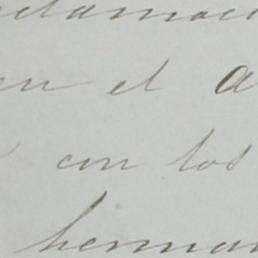 eclamaci
en el a
con los
herman